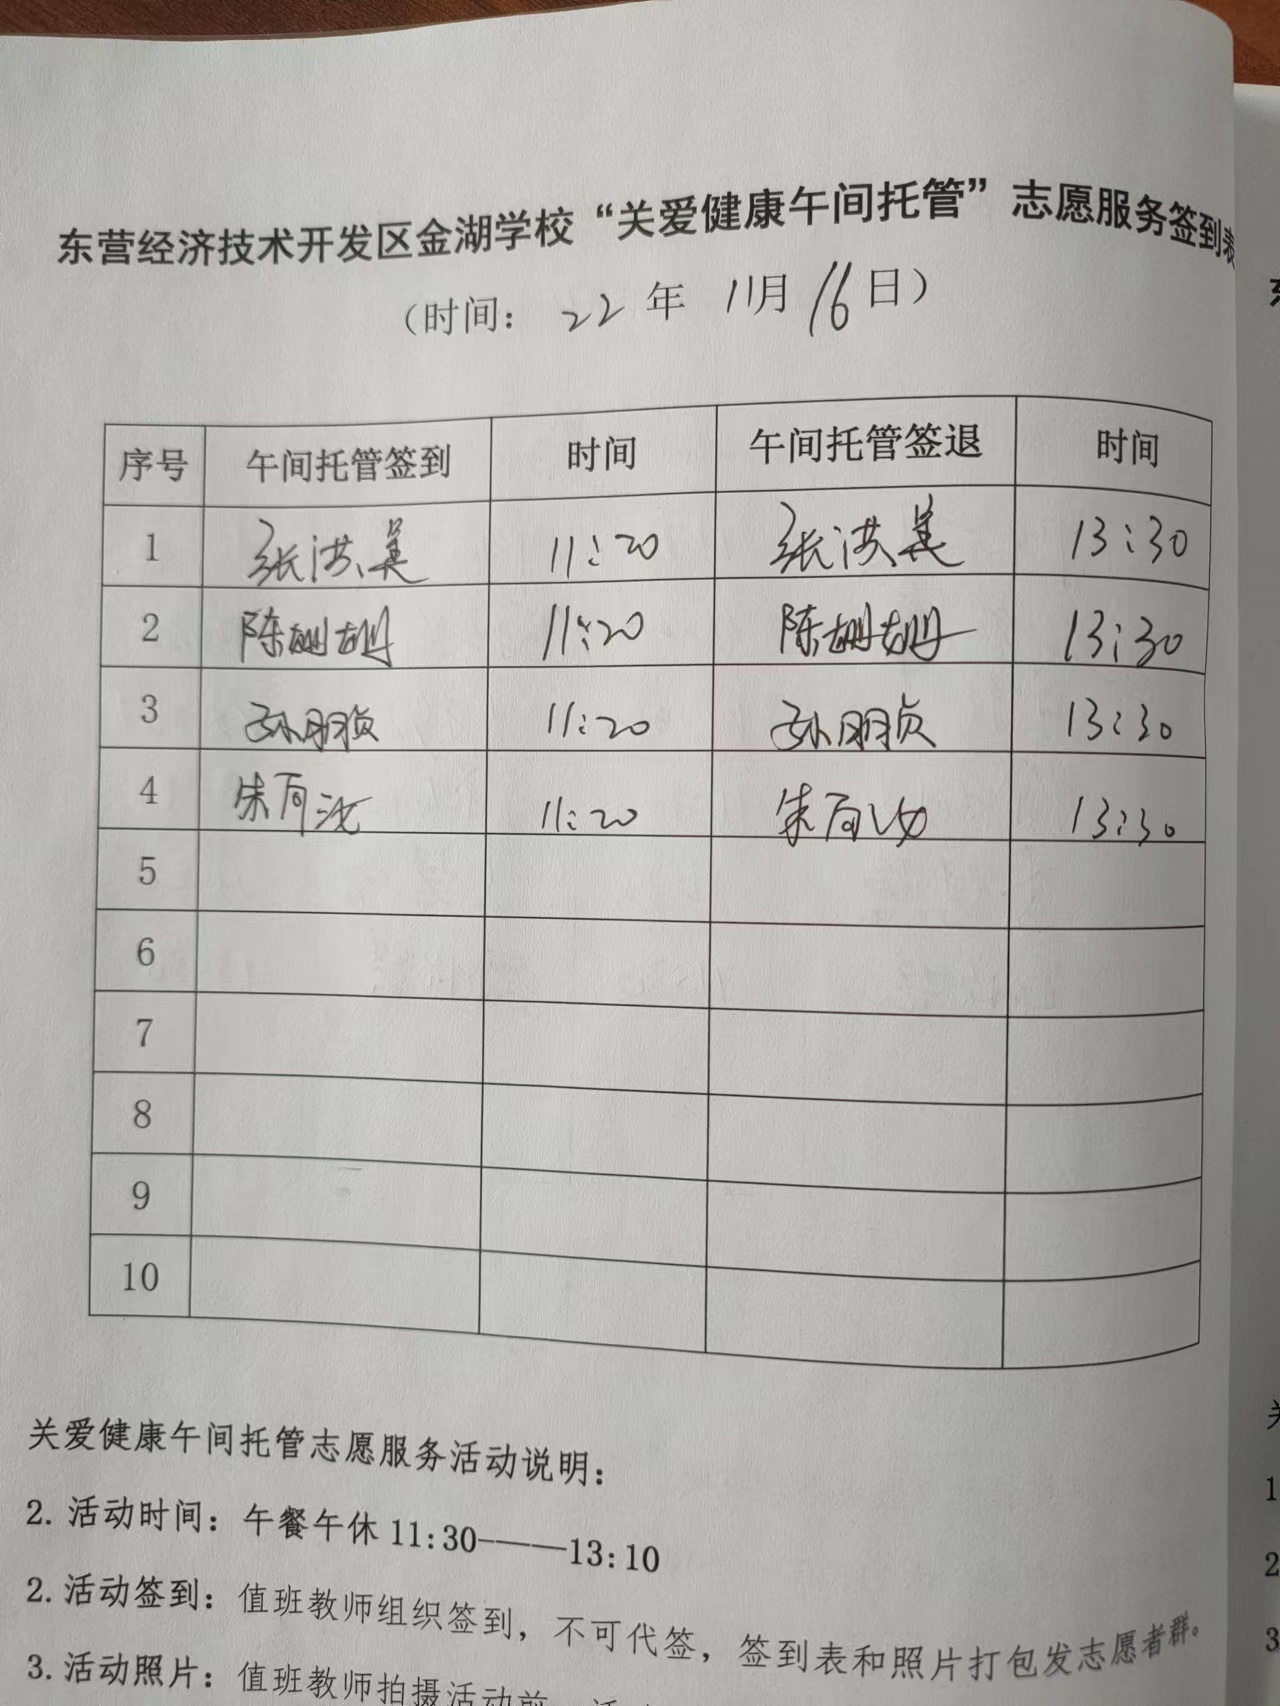 东营经济技术开发区金湖学校“关爱健康午间托管”志愿服务签到表
（时间： 22 年 11月 16日）
序号 午间托管签到 时间 午间托管签退 时间
1 张洪美 11:20 张洪美 13:30
2 陈姗姗 11:20 陈姗姗 13:30
3 孙朋贞 11:20 孙朋贞 13:30
4 11:20 13:30
5
6
7
8
9
10
关爱健康午间托管志愿服务活动说明：
2. 活动时间：午餐午休 11:30———13:10
2. 活动签到：值班教师组织签到，不可代签，签到表和照片打包发志愿者群。
3. 活动照片：值班教师拍摄活动前
1
2
3